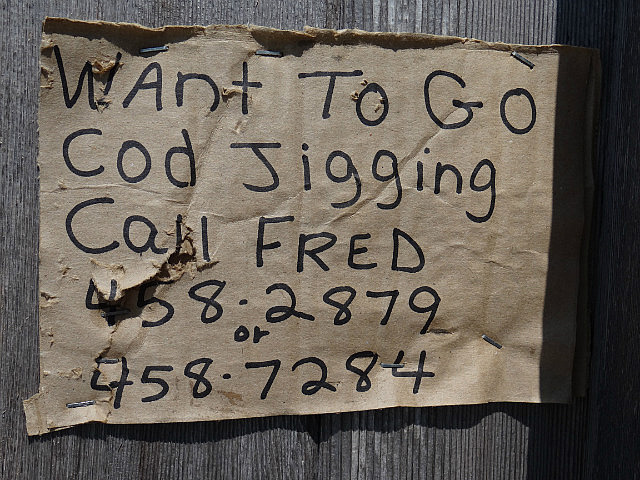 WAnt To Go
Cod Jigging
Call FRED
458.2879
or
458.7284